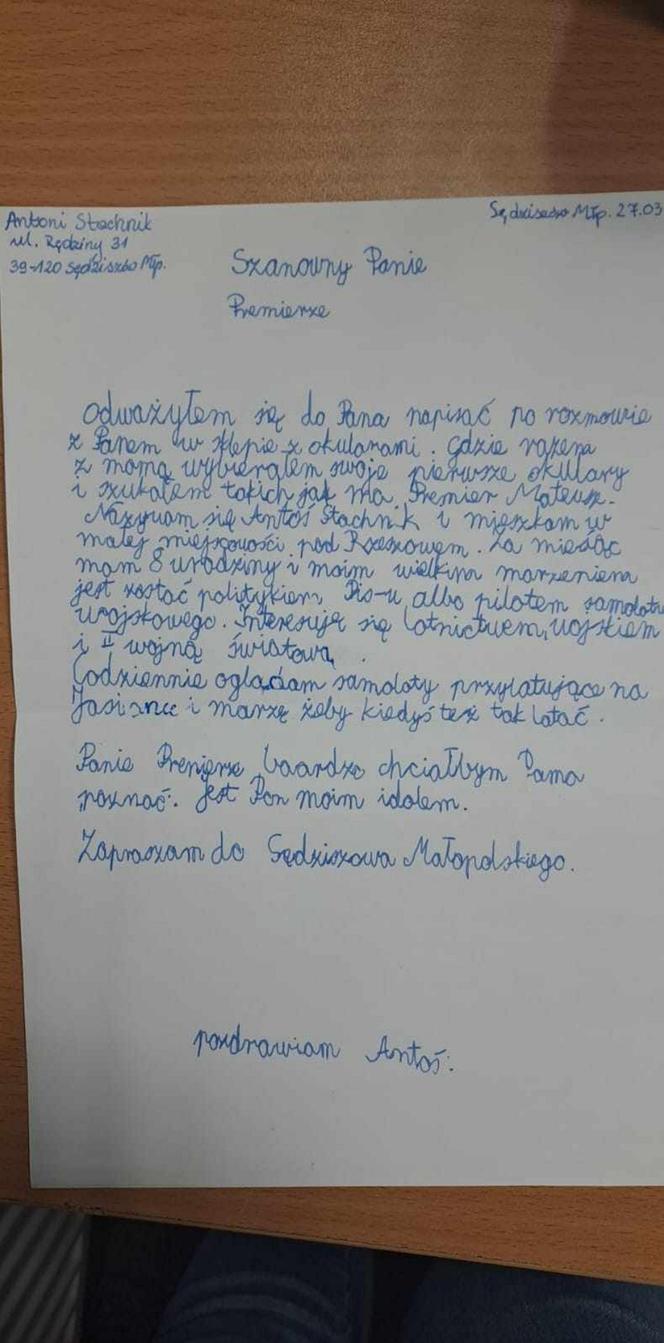 Antoni Stachnik
ul. Rędziny 31
39-120 Sędziszów Młp.
Sędziszów Młp. 27.03
Szanowny Panie
Premierze
odważyłem się do Pana napisać po rozmowie
z Panem w sklepie z okularami. gdzie razem
z mamą wybierałem swoje pierwsze okulary
i szukałem takich jak ma Premier Mateusz.
Nazywam się Antoś Stachnik i mieszkam w
małej miejscowości pod Rzeszowem. Za miesiąc
mam 8 urodziny i moim wielkim marzeniem
jest zostać politykiem Pis-u albo pilotem samolotu
wojskowego. Interesuję się lotnictwem, wojskiem
i II wojną światową.
Codziennie oglądam samoloty przylatujące na
Jasionce i marzę żeby kiedyś też tak latać.
Panie Premierze baardzo chciałbym Pana
poznać. jest Pan moim idolem.
Zapraszam do Sędziszowa Małopolskiego.
pozdrawiam Antoś.